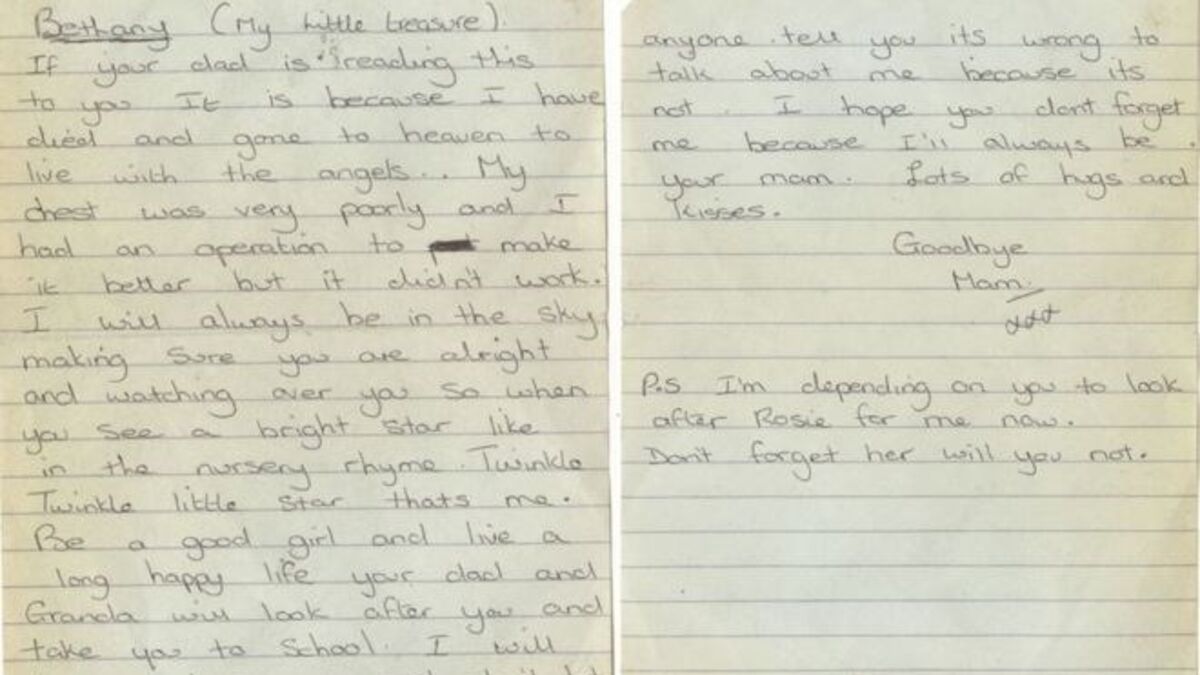 Bethany (My little treasure).
If your dad is reading this
to you It is because I have
died and gone to heaven to
live with the angels.. My
chest was very poorly and I
had an operation to make
it better but it didn't work.
I will always be in the sky
making sure you are alright
and watching over you so when
you see a bright star like
in the nursery rhyme. Twinkle
Twinkle little star thats me.
Be a good girl and live a
long happy life your dad and
Granda will look after you and
take you to school. I will
anyone tell you its wrong to
talk about me because its
not. I hope you dont forget
me because I'll always be
your mam. Lots of hugs and
kisses.
Goodbye
Mam.
xxx
P.S I'm depending on you to look
after Rosie for me now.
Don't forget her will you not.